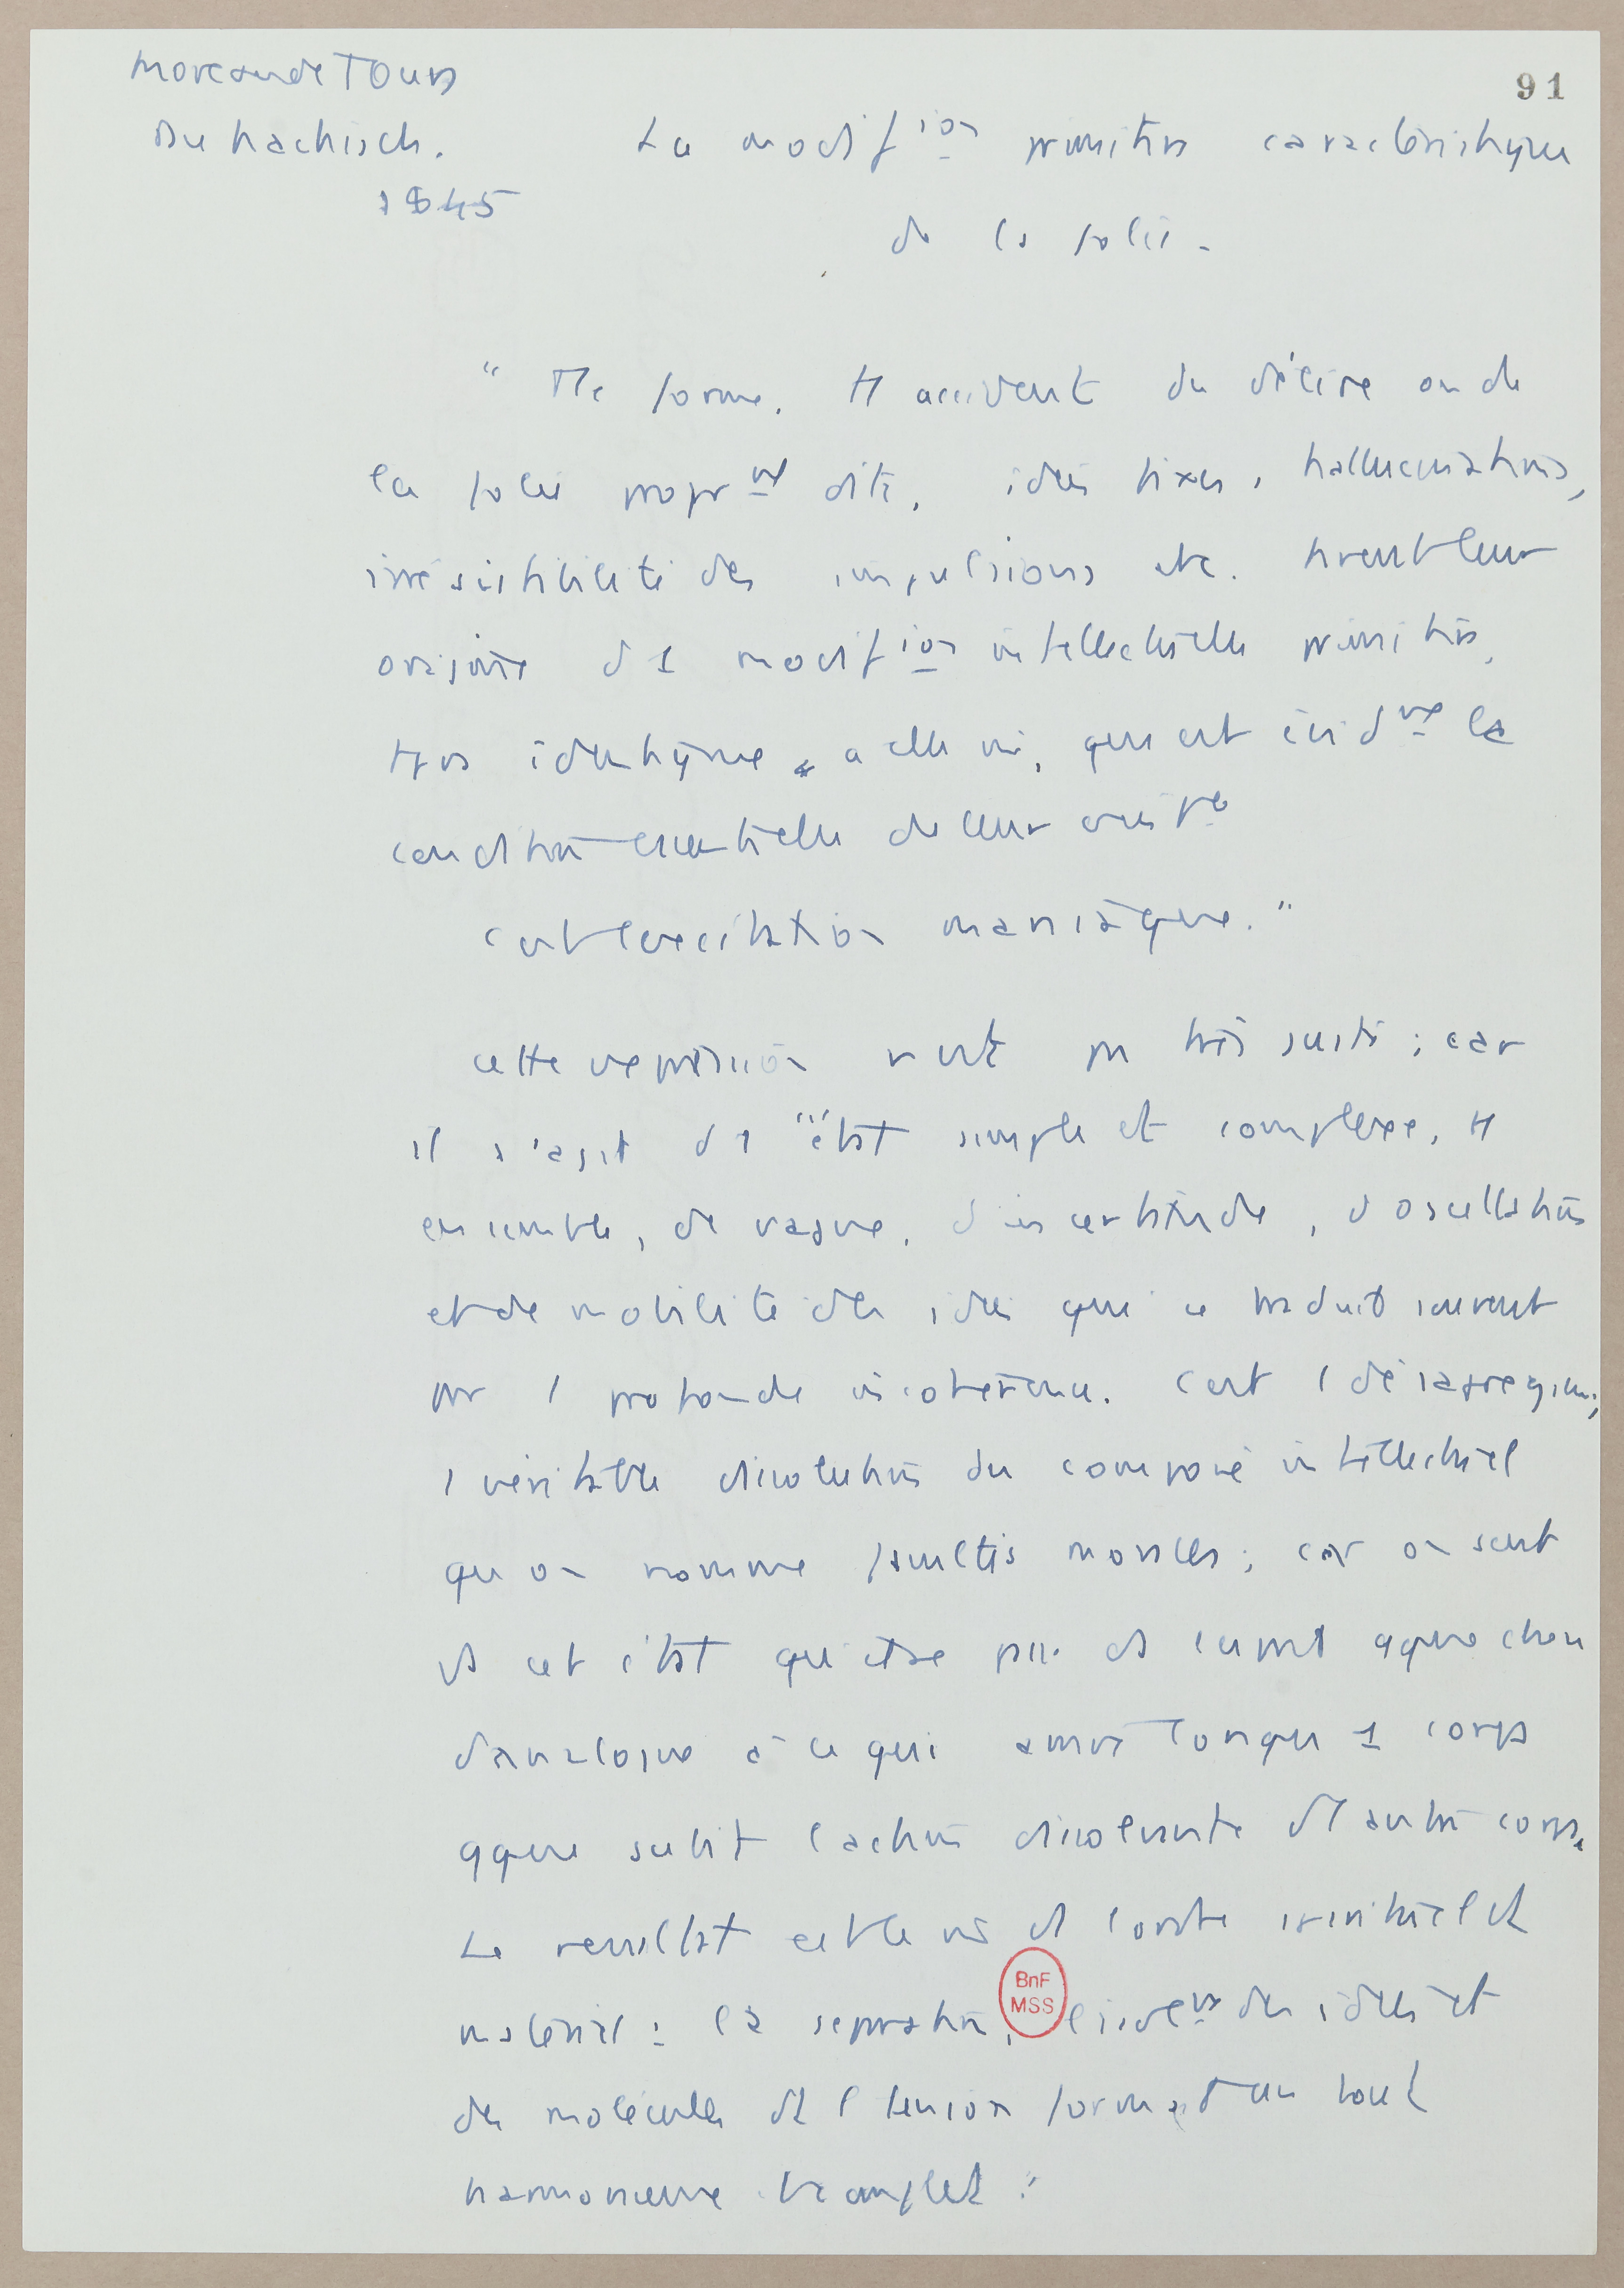 Moreau de Tours
91
Du hachisch.
La modif ion primitive caractéristique
1845
de la folie.
" Tte forme, tt accident du délire ou de
la folie propr nt dite, idées fixes, hallucinations,
irrésistibilité des impulsions etc. tirent leur
origine d 1 modif ion intellectuelle primitive,
tjrs identique à elle mê, qui est évid nt la
condition essentielle de leur exist ce
C'est l'excitation maniaque."
Cette expression n'est pas très juste ; car
il s'agit d 1 "état simple et complexe, tt
ensemble, de vague, d'incertitude, d'oscillations
et de mobilité des idées qui se traduit souvent
par 1 profonde incohérence. C'est 1 désagrégation,
1 véritable dissolution du composé intellectuel
qu'on nomme facultés morales ; car on sent
ds cet état qu'il se passe ds l'esprit qque chose
d'analogue à ce qui arrive lorsqu 1 corps
qque subit l'action dissolvante d'1 autre corps.
Le résultat est le mê ds l'ordre spirituel et
matériel : la séparation, l'isole nt des idées et
des molécules dt l'union formait un tout
harmonieux et complet."
BnF
MSS